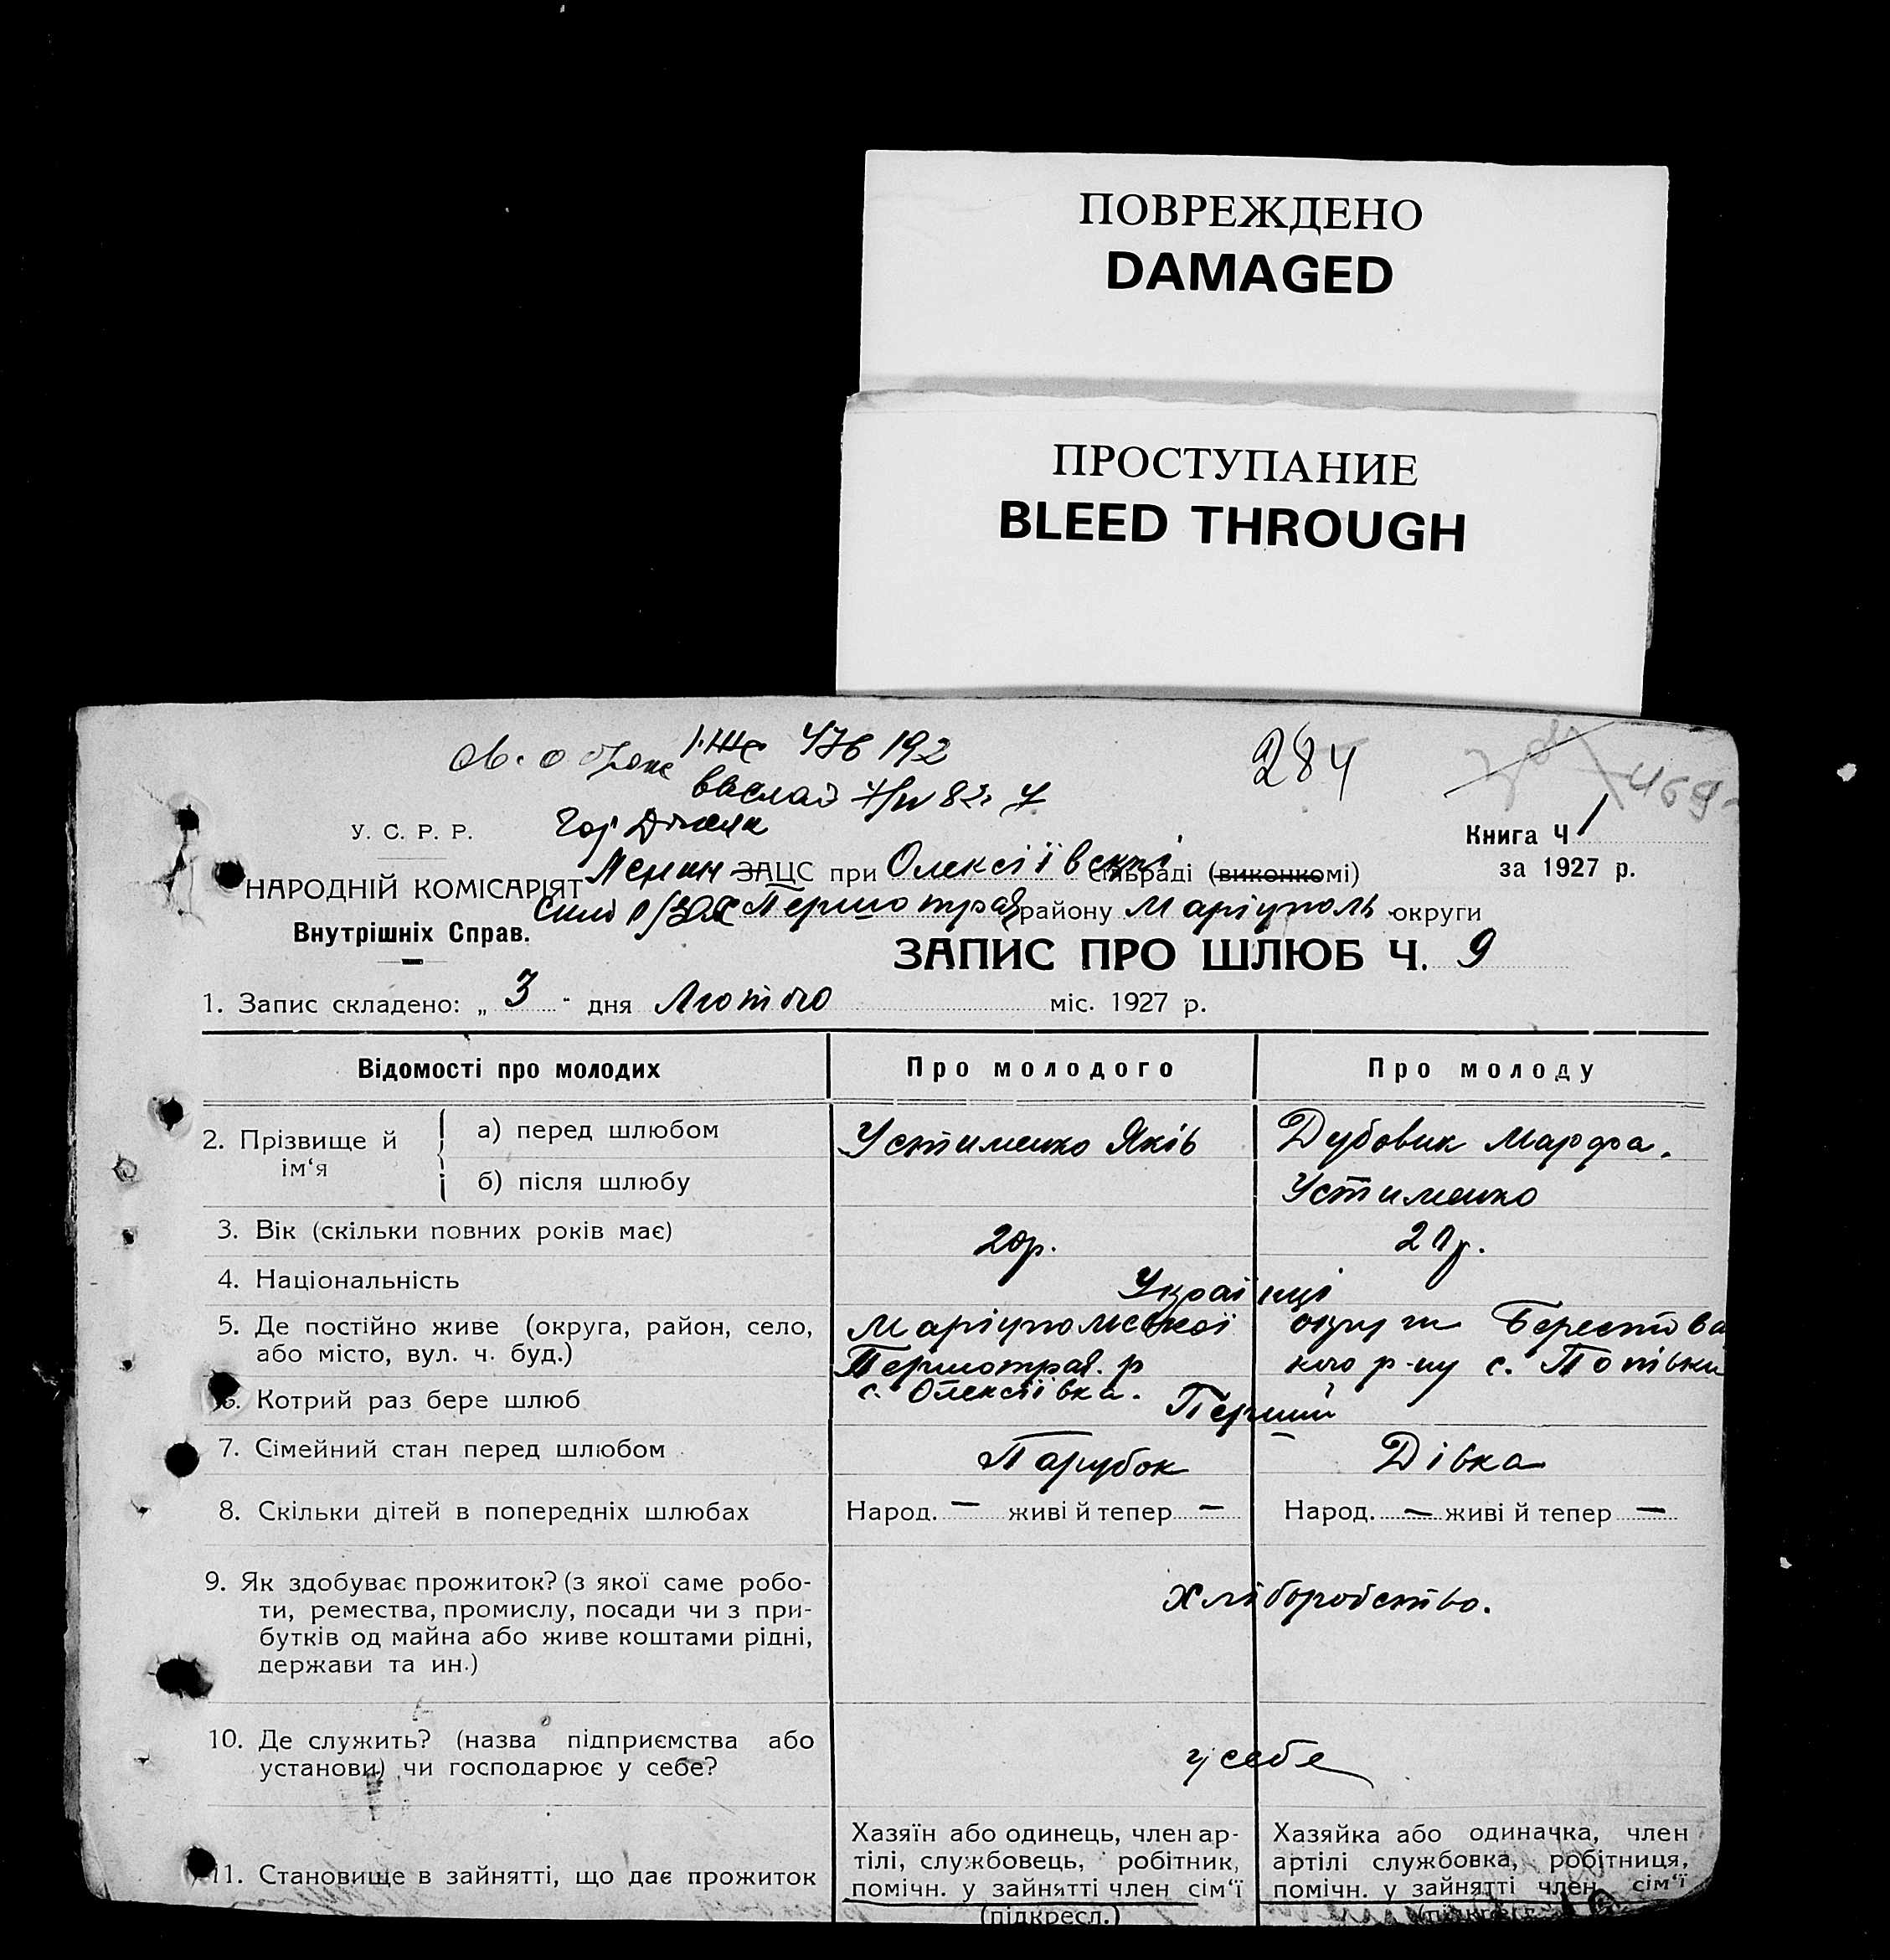 ПОВРЕЖДЕНО
DAMAGED
ПРОСТУПАНИЕ
BLEED THROUGH
284
469
У. С. Р. Р.
Книга Ч 1
НАРОДНІЙ КОМІСАРІЯТ
ЗАЦС при Олексіївскій сільраді (виконкомі)
за 1927 р.
Першотрав району Маріуполь округи
Внутрішніх Справ.
ЗАПИС ПРО ШЛЮБ Ч. 9
1. Запис складено: „ 3 " дня Лютого міс. 1927 р.
Відомості про молодих Про молодого Про молоду
2. Прізвище й ім‘я
а) перед шлюбом Устименко Яків Дубовик Марфа.
б) після шлюбу Устименко
3. Вік (скільки повних років має) 20р. 21р.
4. Національність Українці
5. Де постійно живе (округа, район, село, Маріупольської округи Берестова
або місто, вул. ч. буд.) Першотрав. р кого р-ну с. Попівки
с. Олексіївка.
6. Котрий раз бере шлюб Перший
7. Сімейний стан перед шлюбом Парубок Дівка
8. Скільки дітей в попередніх шлюбах Народ. — живі й тепер — Народ. — живі й тепер —
9. Як здобуває прожиток? (з якої саме робо-
ти, ремества, промислу, посади чи з при- Хліборобство.
бутків од майна або живе коштами рідні,
держави та ин.)
10. Де служить? (назва підприємства або
установи) чи господарює у себе? у себе
11. Становище в зайнятті, що дає прожиток
Хазяїн або одинець, член ар-
тілі, службовець, робітник,
помічн. у зайнятті член сім‘ї
(підкресл.)
Хазяйка або одиначка, член
артілі службовка, робітниця,
помічн. у зайнятті член сім‘ї